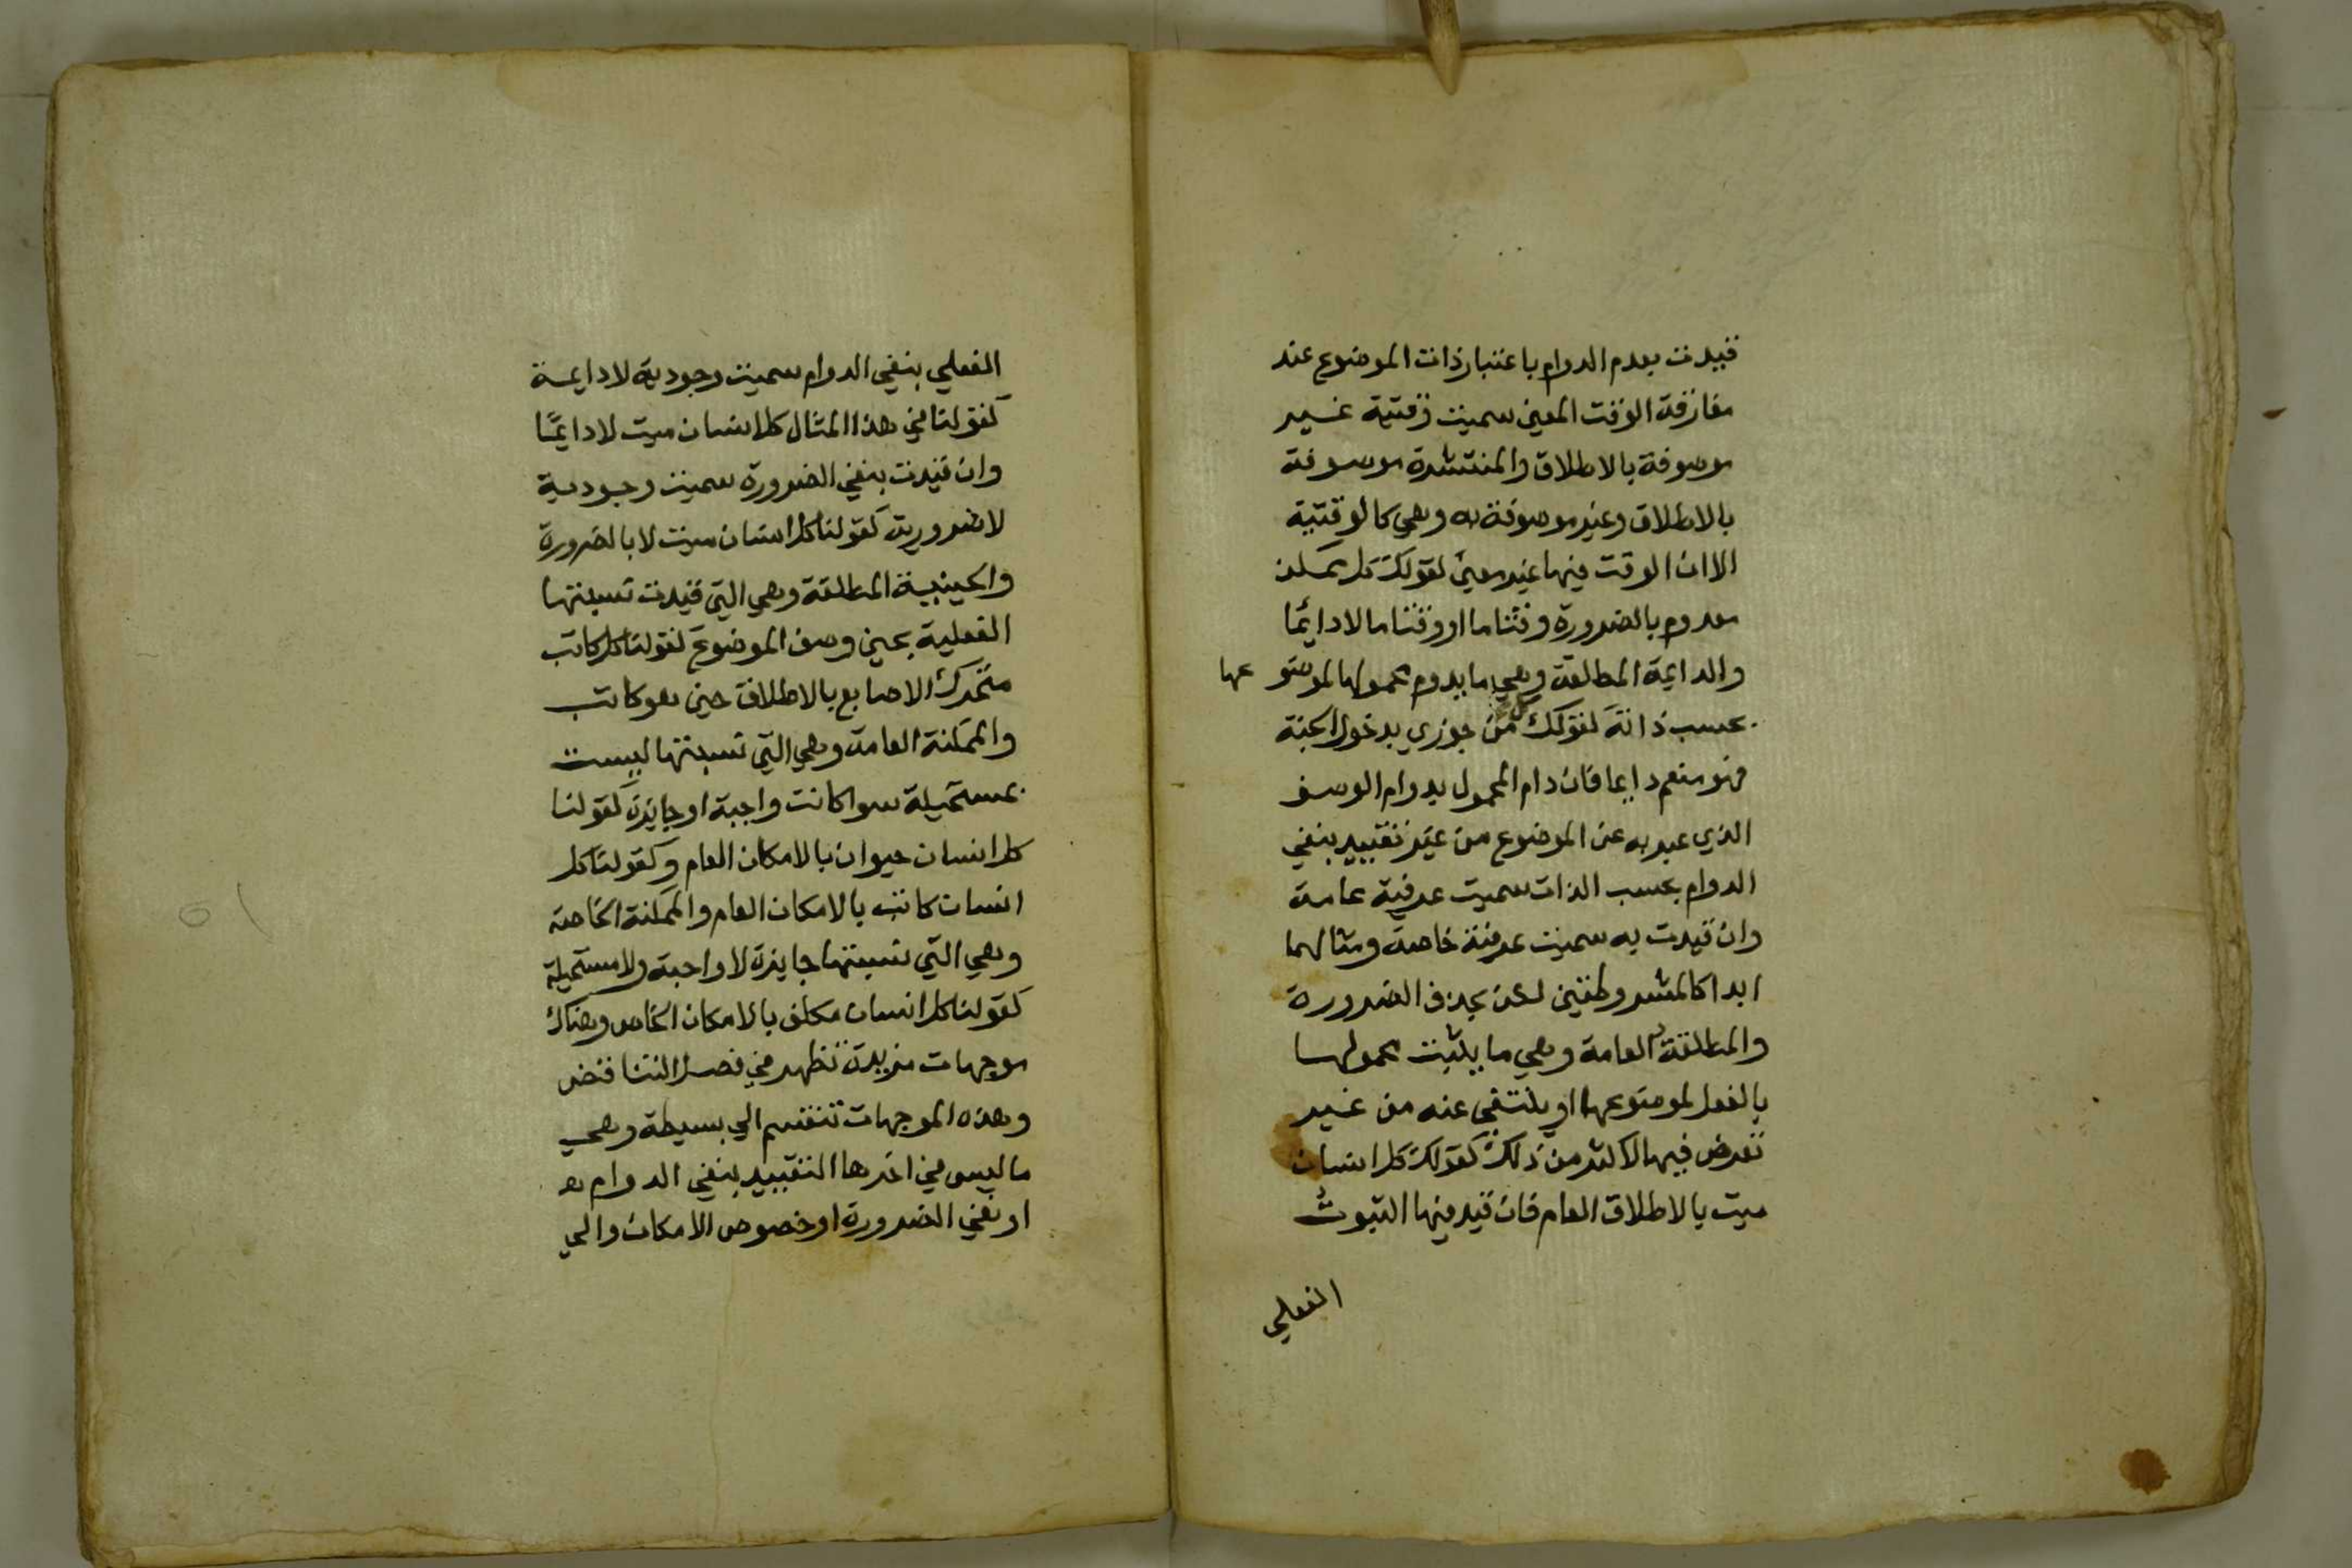 قيدت بعدم الدوام باعتبار ذات الموضوع عند
مفارقة الوقت المعين سميت وقتية غير
موصوفة بالاطلاق والمنتشرة موصوفة
بالاطلاق وغير موصوفة به وهي كالوقتية
الا ان الوقت فيها غير معين كقولك كل ممكن
معدوم بالضرورة وقتا ما او وقتا ما لا دايما
والدايمة المطلقة وهي ما يدوم محمولها لموضو عها
بحسب ذاته كقولك كل من جوزي بدخول الجنة
فهو منعم دايما فان دام المحمول بدوام الوصف
الذي عبر به عن الموضوع من غير تقييد بنفي
الدوام بحسب الذات سميت عرفية عامة
وان قيدت به سميت عرفية خاصة ومثالهما
ابدا كالمشروطتين لكن بحذف الضرورة
والمطلقة العامة وهي ما يثبت محمولها
بالفعل لموضوعها او ينتفي عنه من غير
تعرض فيها لاكثر من ذلك كقولك كل انسان
ميت بالاطلاق العام فان قيد فيها الثبوت
الفعلي
الفعلي بنفي الدوام سميت وجودية لا دايمة
كقولنا في هذا المثال كل انسان ميت لا دايما
وان قيدت بنفي الضرورة سميت وجودية
لا ضرورية كقولنا كل انسان ميت لا بالضرورة
والحينية المطلقة وهي التي قيدت نسبتها
الفعلية بحين وصف الموضوع كقولنا كل كاتب
متحرك الاصابع بالاطلاق حين هو كاتب
والممكنة العامة وهي التي نسبتها ليست
بمستحيلة سوا كانت واجبة او جايزة كقولنا
كل انسان حيوان بالامكان العام وكقولنا كل
انسان كاتب بالامكان العام والممكنة الخاصة
وهي التي نسبتها جايزة لا واجبة ولا مستحيلة
كقولنا كل انسان مكلف بالامكان الخاص وهناك
موجهات مزيدة تظهر في فصل التناقض
وهذه الموجهات تنقسم الي بسيطة وهي
ما ليس في اخرها التقييد بنفي الدوام
او بنفي الضرورة او خصوص الامكان والي